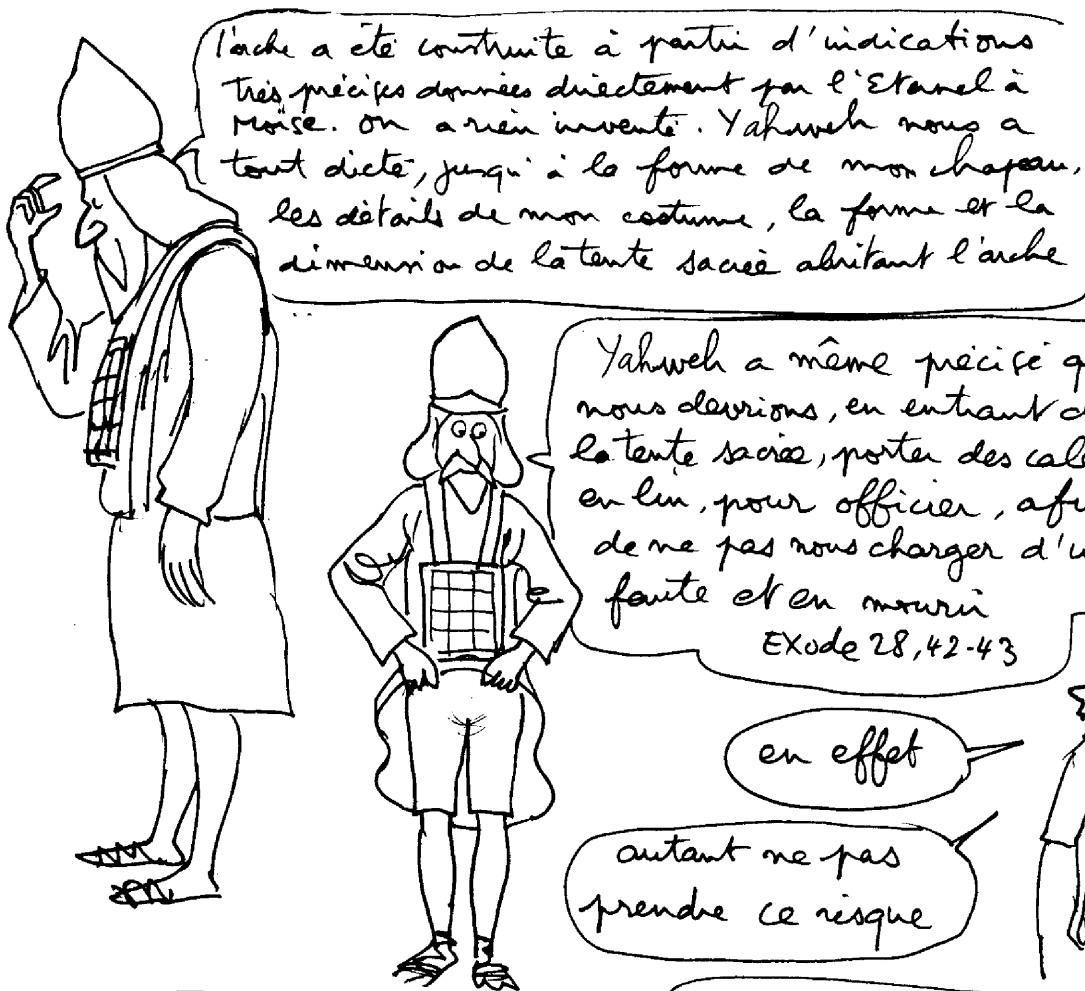 l'arche a été construite à partir d'indications
très précises données directement par l'Eternel à
Moïse. on a rien inventé. Yahweh nous a
tout dicté, jusqu'à la forme de mon chapeau,
les détails de mon costume, la forme et la
dimension de la tente sacrée abritant l'arche
Yahweh a même précisé q
nous devrions, en entrant d
la tente sacrée, porter des cale
en lin, pour officier, afi
de ne pas nous charger d'u
faute et en mourir
EXode 28,42-43
en effet
autant ne pas
prendre ce risque